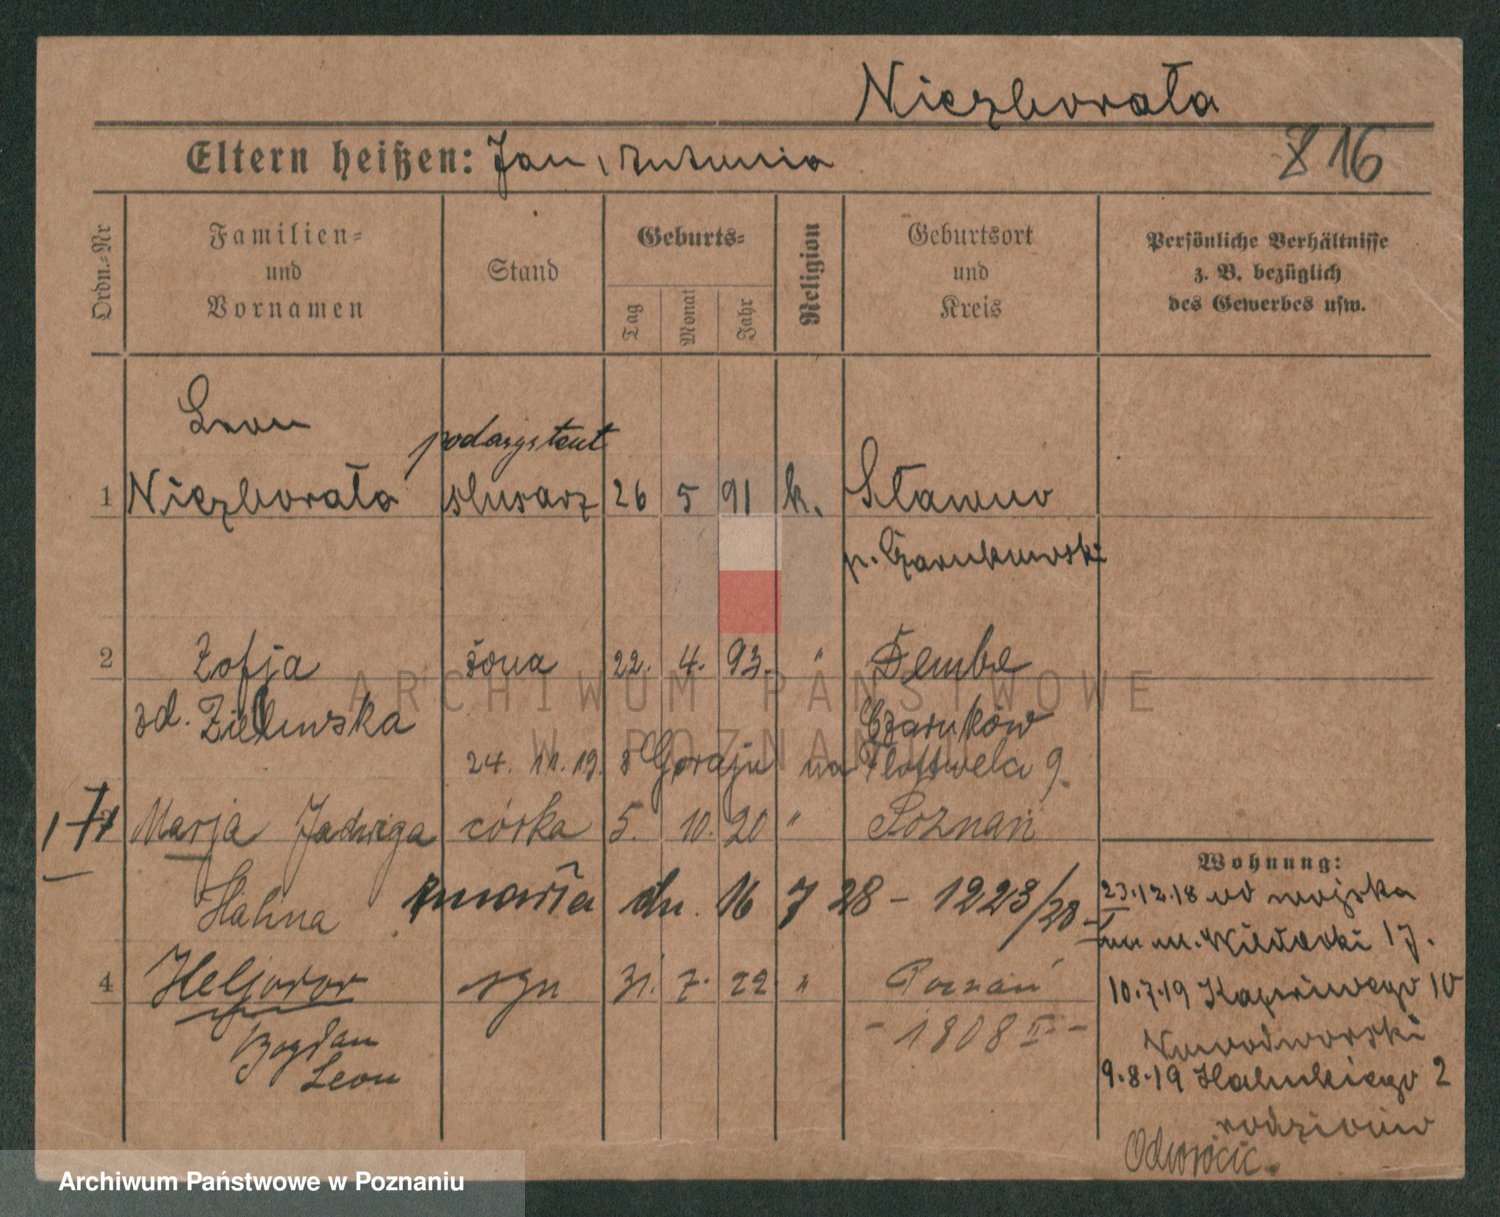 Niezborała
Eltern heißen: Jan, Antonia
Z 16
Ordn.-Nr
Familien-
und
Vornamen
Stand
Geburts-
Tag
Monat
Jahr
Religion
Geburtsort
und
Kreis
Persönliche Verhältnisse
z. B. bezüglich
des Gewerbes usw.
Leon
podasystent
1 Niezborała ślusarz 26 5 91 k. Sławno
p. Czarnkowski
2 Zofja żona 22. 4. 93. " Dembe
zd. Zielewska Czarnków
24. 11. 19. z Goraju na Flottwela 9.
1 3 Marja Jadwiga córka 5. 10. 20 " Poznań
Halina zmarła dn. 16 7 28 - 1223/28
4 Heljodor syn 31. 7. 22 " Poznań
- 1808 -
Bogdan
Leon
Wohnung:
23.12.18 od wojska
10.7.19 Kazimierza 10
Nowodworski
9.8.19 Kalinkiego 2
rodziców
Odwrócić.
ARCHIWUM PAŃSTWOWE
W POZNANIU
Archiwum Państwowe w Poznaniu